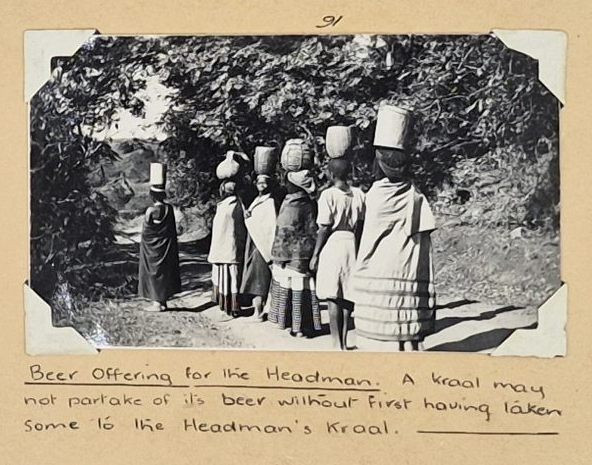 91
Beer Offering for the Headman. A kraal may
not partake of its beer without first having taken
some to the Headman's Kraal.